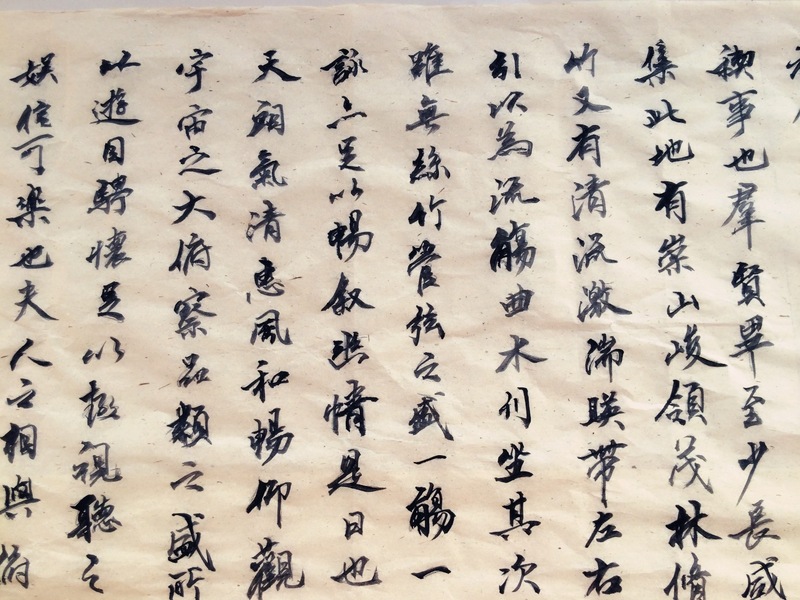 禊事也羣賢畢至少長咸
集此地有崇山峻領茂林脩
竹又有清流激湍暎帶左右
引以為流觴曲水列坐其次
雖無絲竹管弦之盛一觴一
詠亦足以暢叙幽情是日也
天朗氣清惠風和暢仰觀
宇宙之大俯察品類之盛所
以遊目騁懷足以極視聽之
娛信可樂也夫人之相與俯